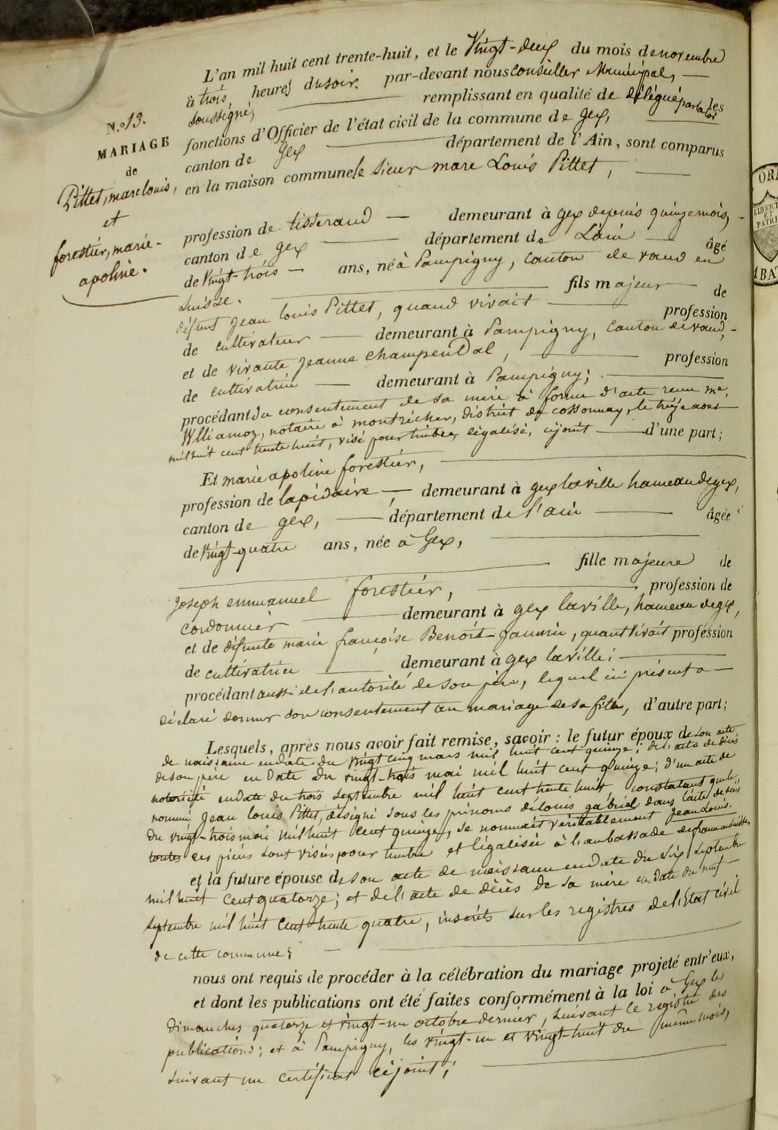 N.o 13.
MARIAGE
de
Pittet, marc louis,
et
forestier, marie-
apoline.
L'an mil huit cent trente-huit, et le Vingt-deux du mois de novembre
à trois, heures du soir par-devant nous conseiller Municipal,
soussigné, remplissant en qualité de délégué par la loi les
fonctions d'Officier de l'état civil de la commune de Gex,
canton de Gex département de l'Ain, sont comparus
en la maison commune le sieur marc Louis Pittet,
profession de tisserand demeurant à Gex depuis quinze mois,
canton de Gex département de L'ain âgé
de Vingt-trois ans, né à Pampigny, canton de vaud en
suisse. fils majeur de
défunt Jean louis Pittet, quand vivait profession
de cultivateur demeurant à Pampigny, canton de vaud,
et de vivante Jeanne Champendal, profession
de cultivatrice demeurant à Pampigny;
procédant du consentement de sa mère à forme d'acte reçu me.
notaire à montricher, district de cossonnay, le treize aout
mil huit cent trente huit, visé pour timbre, légalisé, cijoint d'une part;
Et marie apoline forestier,
profession de lapidaire, demeurant à gex laville hameau de gex,
canton de gex, département de l'ain âgée
de Vingt-quatre ans, née à Gex,
fille majeure de
Joseph emmanuel forestier, profession de
cordonnier demeurant à gex laville, hameau de gex,
et de défunte marie françoise Benoit-, quand vivait profession
de cultivatrice demeurant à gex laville;
procédant aussi de l'autorité de son père, lequel ici présent a
déclaré donner son consentement au mariage de sa fille, d'autre part;
Lesquels, après nous avoir fait remise, savoir: le futur époux de son acte
de naissance en date du vingt cinq mars mil huit cent quinze; de l'acte de décès
de son père en date du vingt-trois mai mil huit cent quinze; d'un acte de
notoriété en date du trois septembre mil huit cent trente huit constatant que le
nommé Jean louis Pittet, désigné sous les prénoms de louis gabriel dans l'acte de décès
du vingt-trois mai mil huit cent quinze, se nommait véritablement Jean Louis.
toutes ces pièces sont visées pour timbre et légalisées à l'ambassade
et la future épouse de son acte de naissance en date du six septembre
mil huit cent quatorze; et de l'acte de décès de sa mère en date du neuf
septembre mil huit cent trente quatre, inscrits sur les registres de l'Etat civil
de cette commune;
nous ont requis de procéder à la célébration du mariage projeté entr'eux,
et dont les publications ont été faites conformément à la loi à Gex les
dimanches quatorze et vingt-un octobre dernier, suivant le registre des
publications; et à Pampigny, les vingt-un et vingt huit du même mois,
suivant un certificat cijoint;